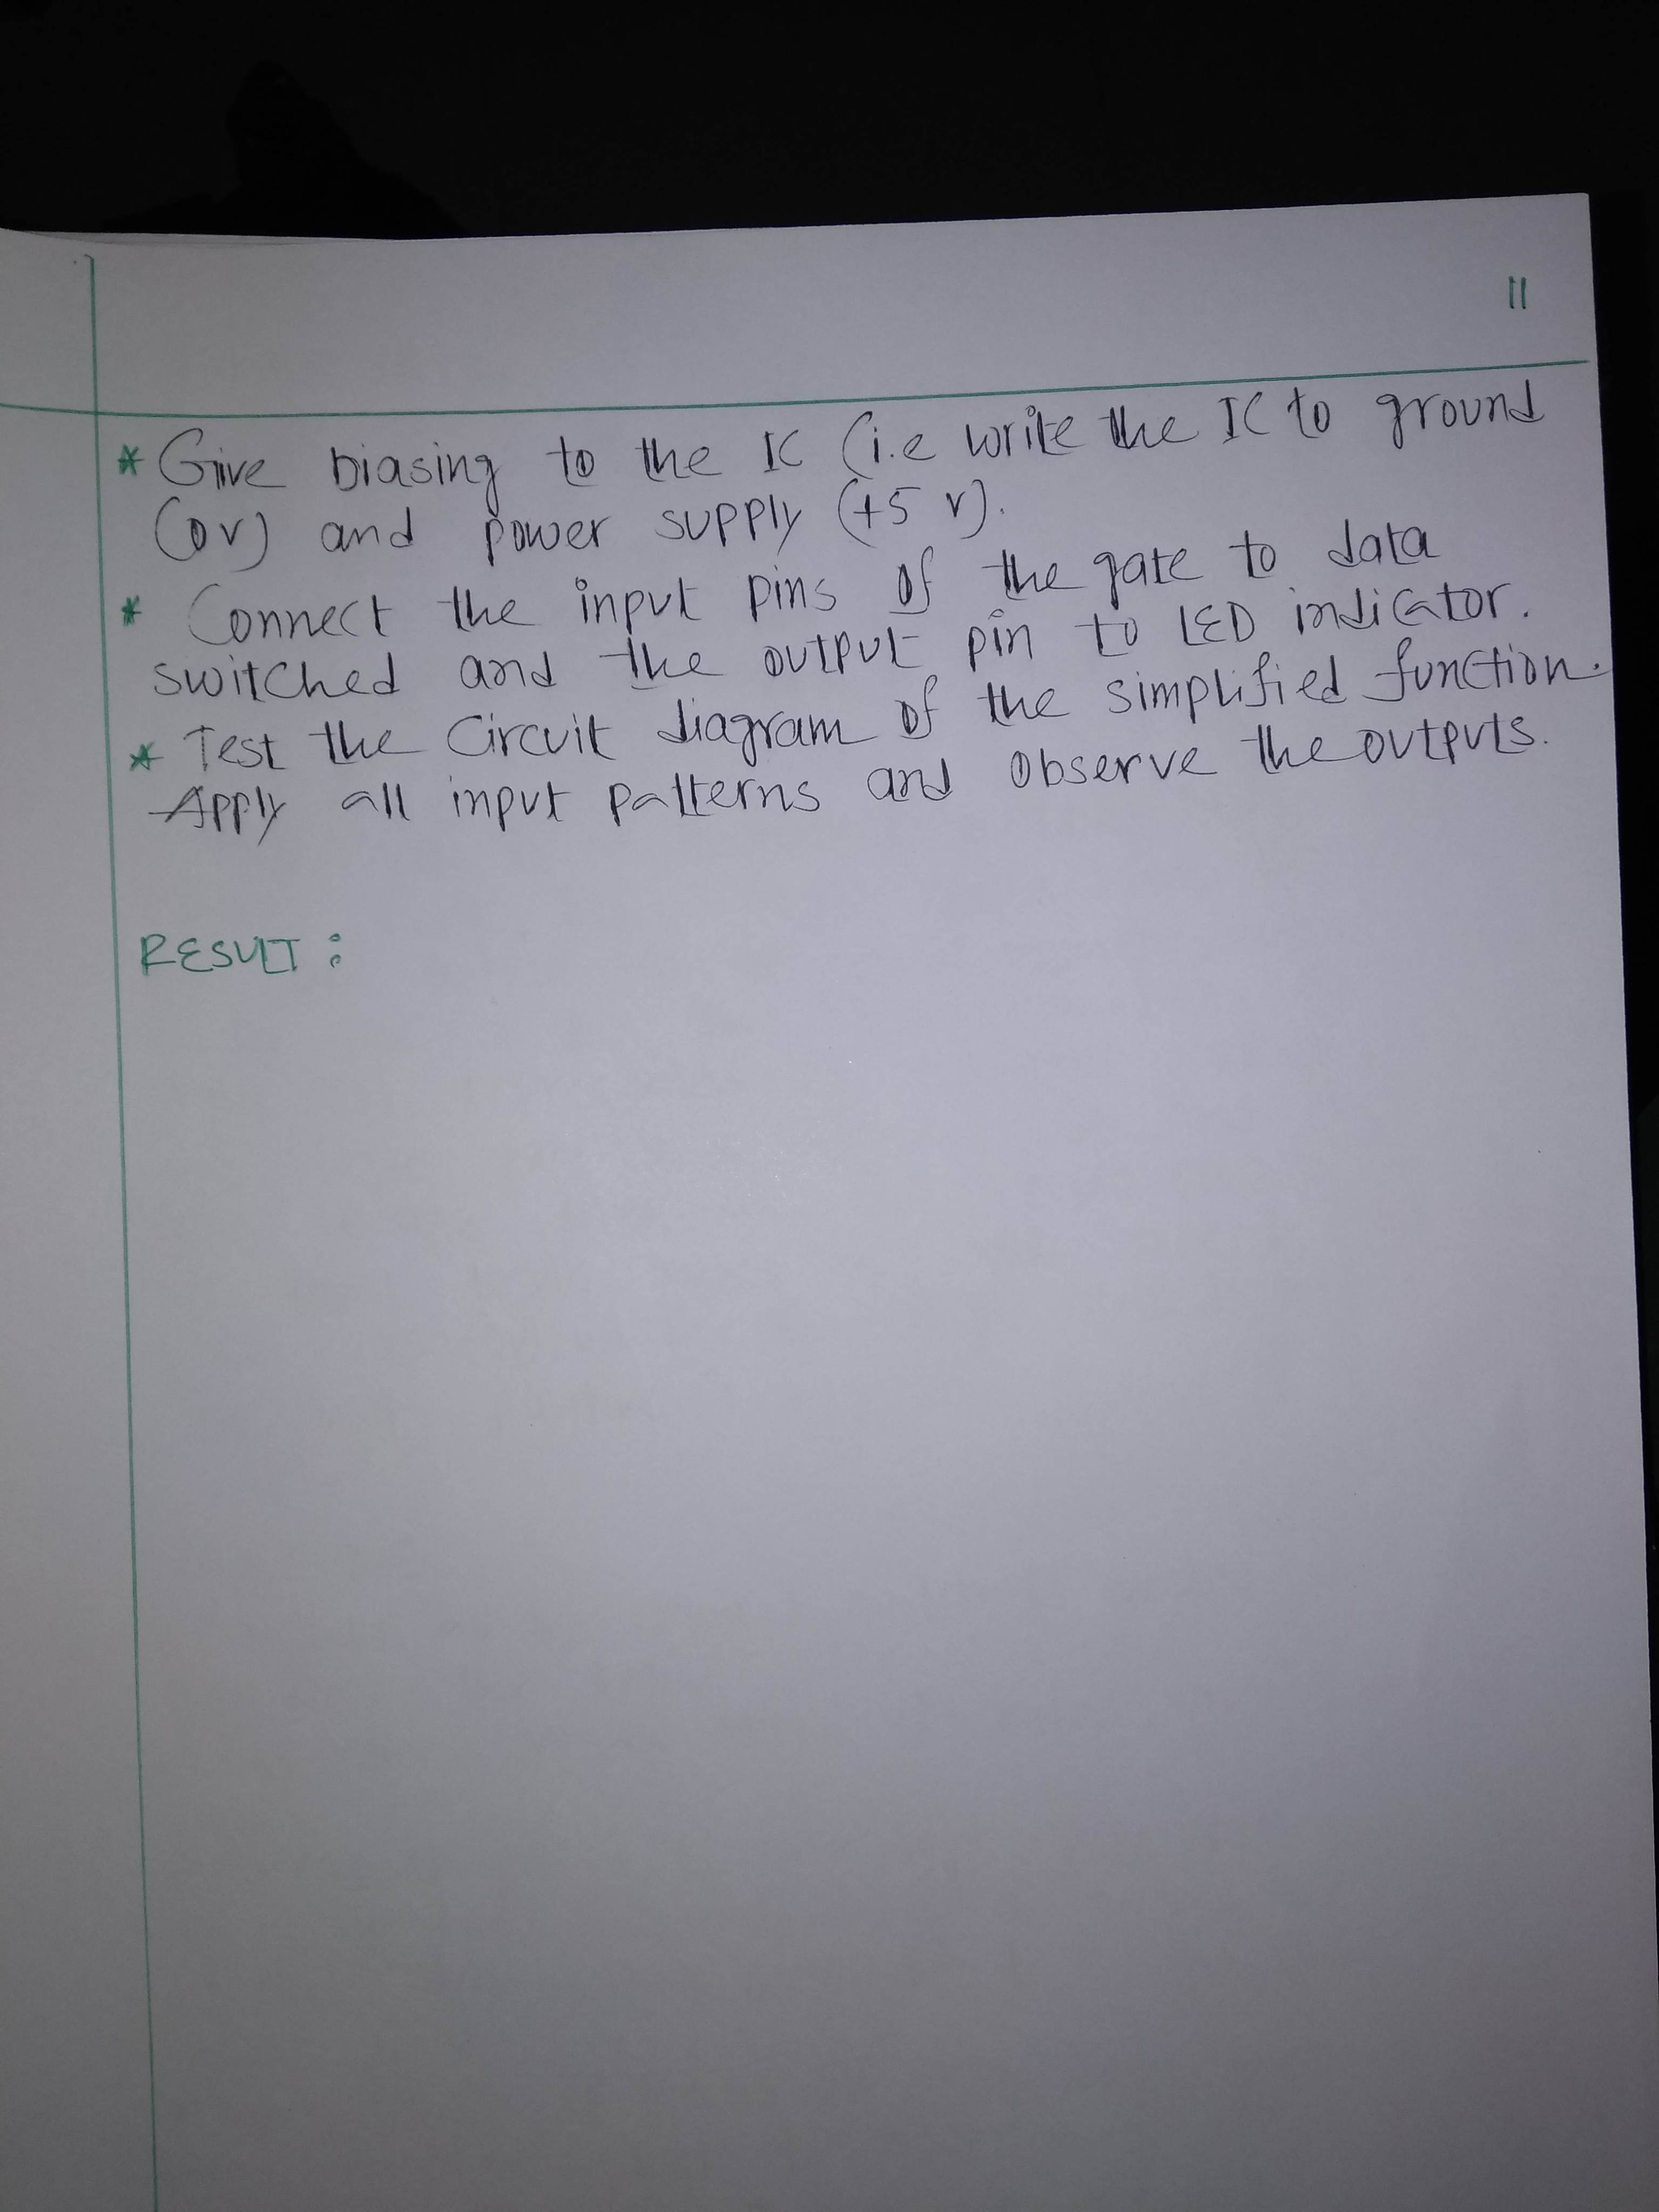 11
* Give biasing to the IC (i.e write the IC to ground
(0v) and power supply (+5 v).
* Connect the input pins of the gate to data
switched and the output pin to LED indicator.
* Test the circuit diagram of the simplified function.
Apply all input patterns and observe the outputs.
RESULT: